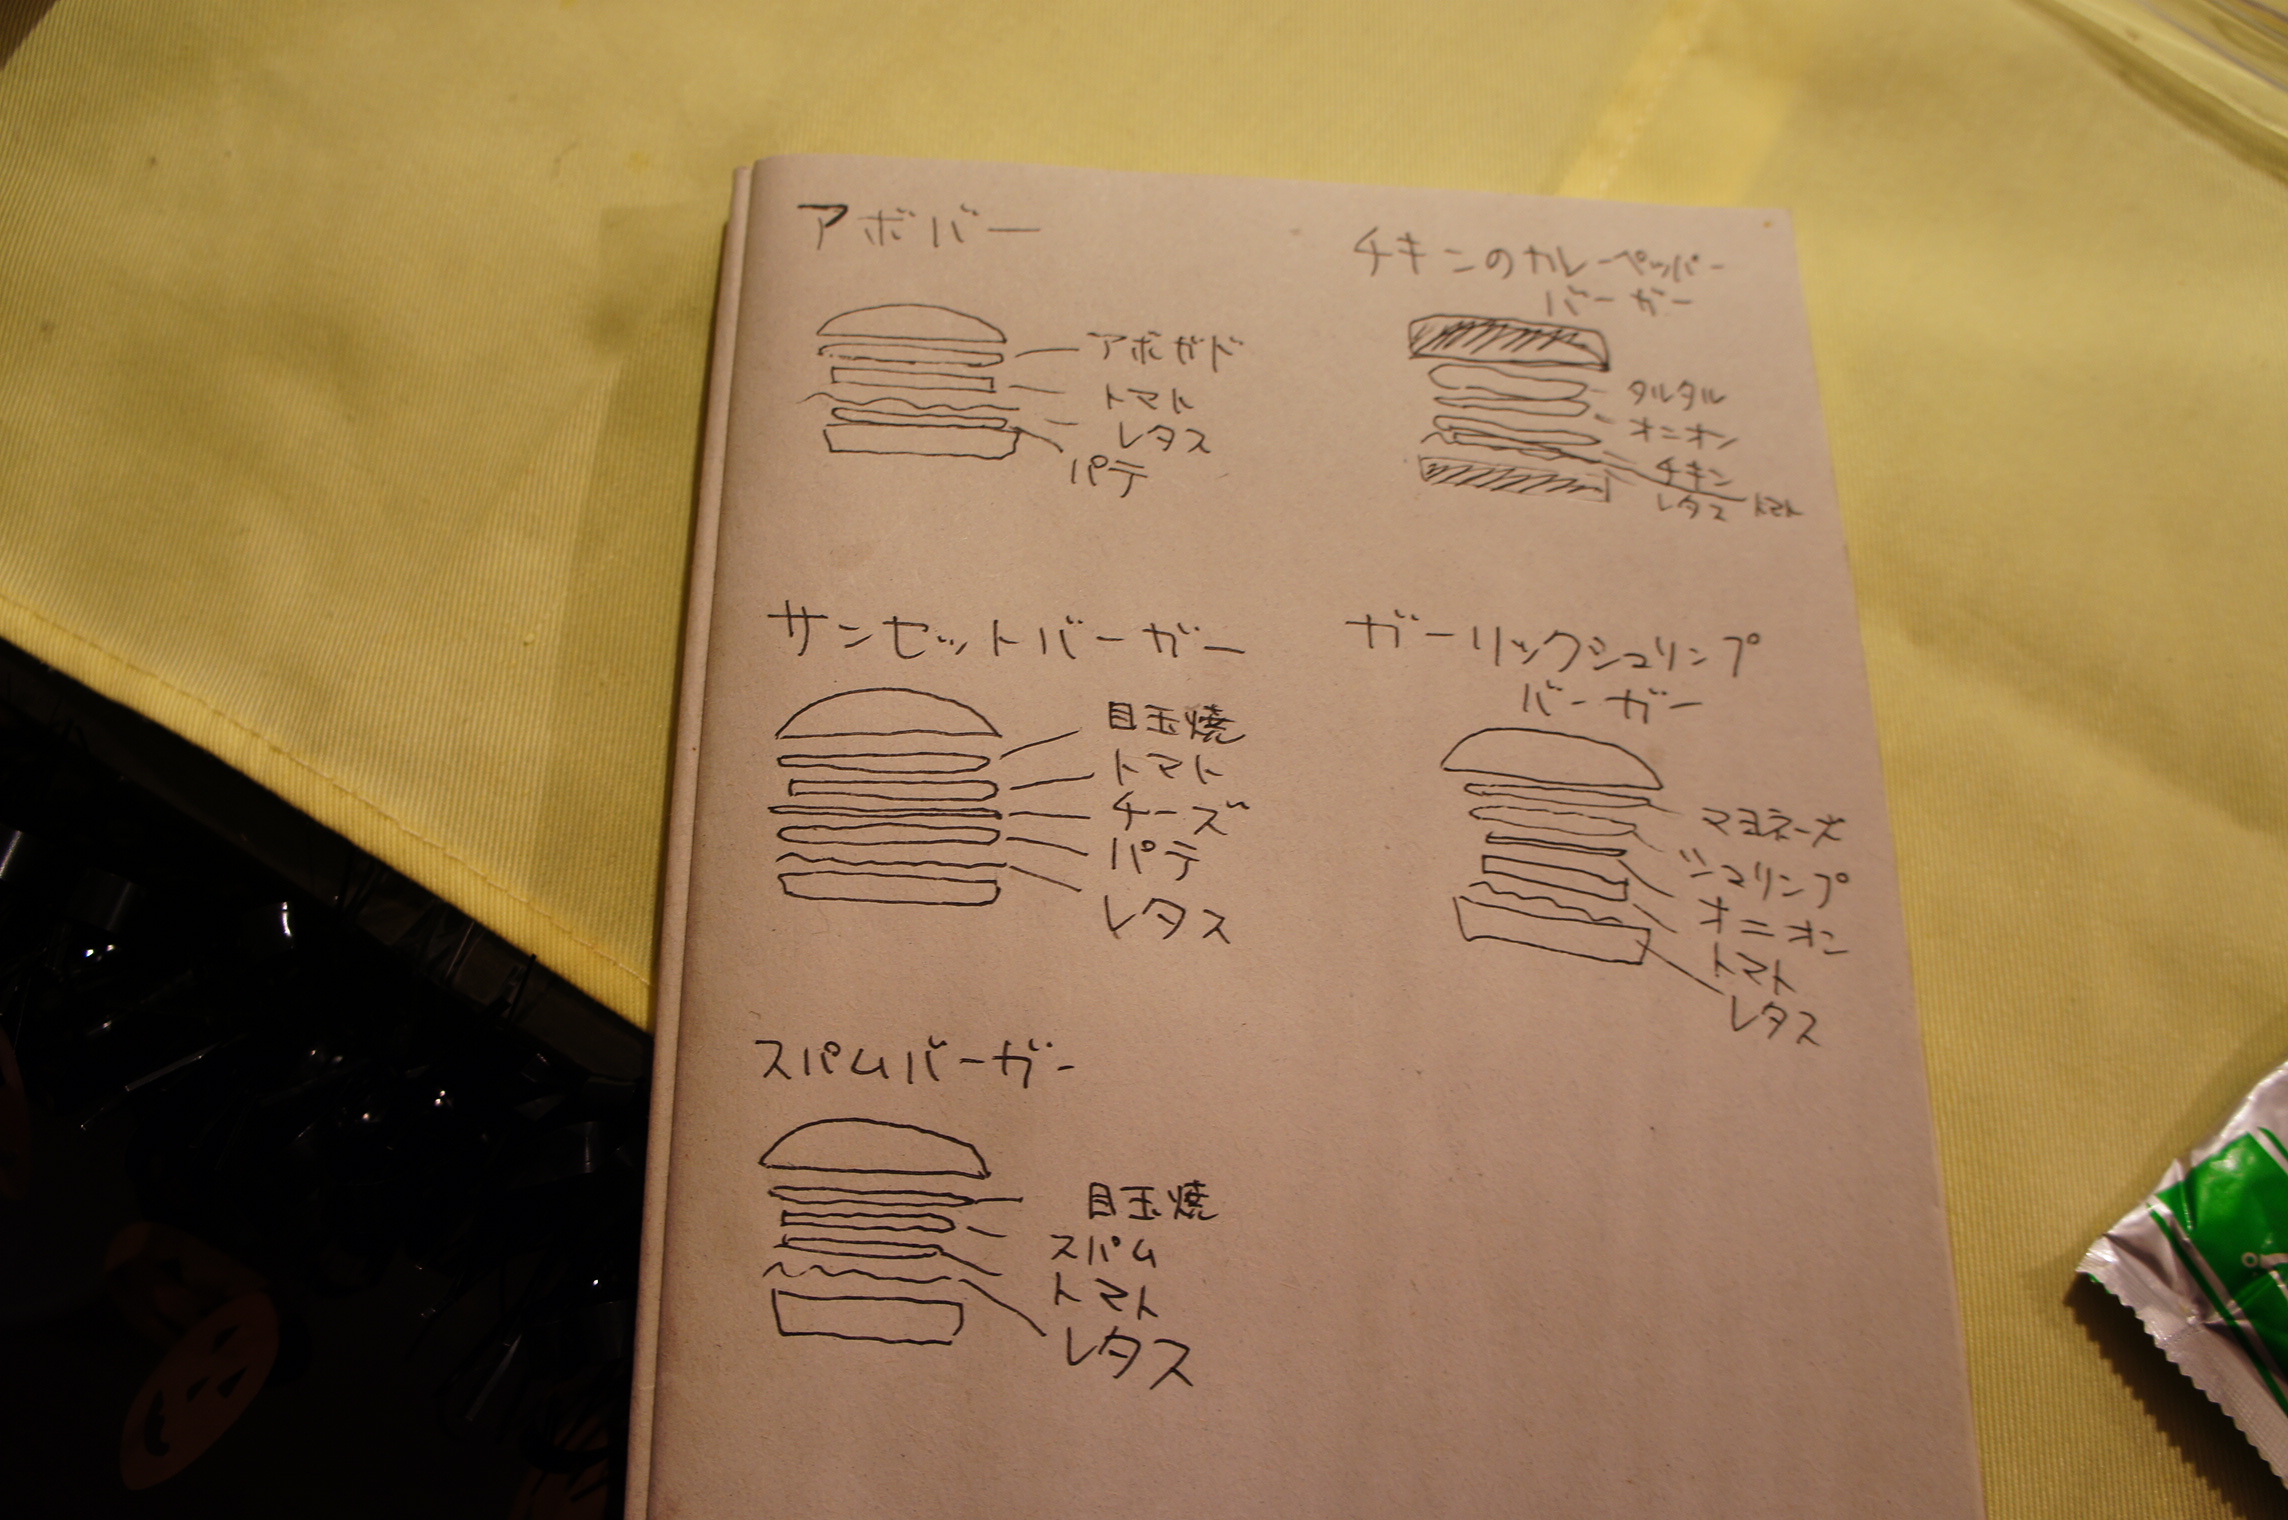 アボバー
アボガド
トマト
レタス
パテ
チキンのカレーペッパー
バーガー
タルタル
オニオン
チキン
レタス トマト
サンセットバーガー
目玉焼
トマト
チーズ
パテ
レタス
ガーリックシュリンプ
バーガー
マヨネーズ
シュリンプ
オニオン
トマト
レタス
スパムバーガー
目玉焼
スパム
トマト
レタス